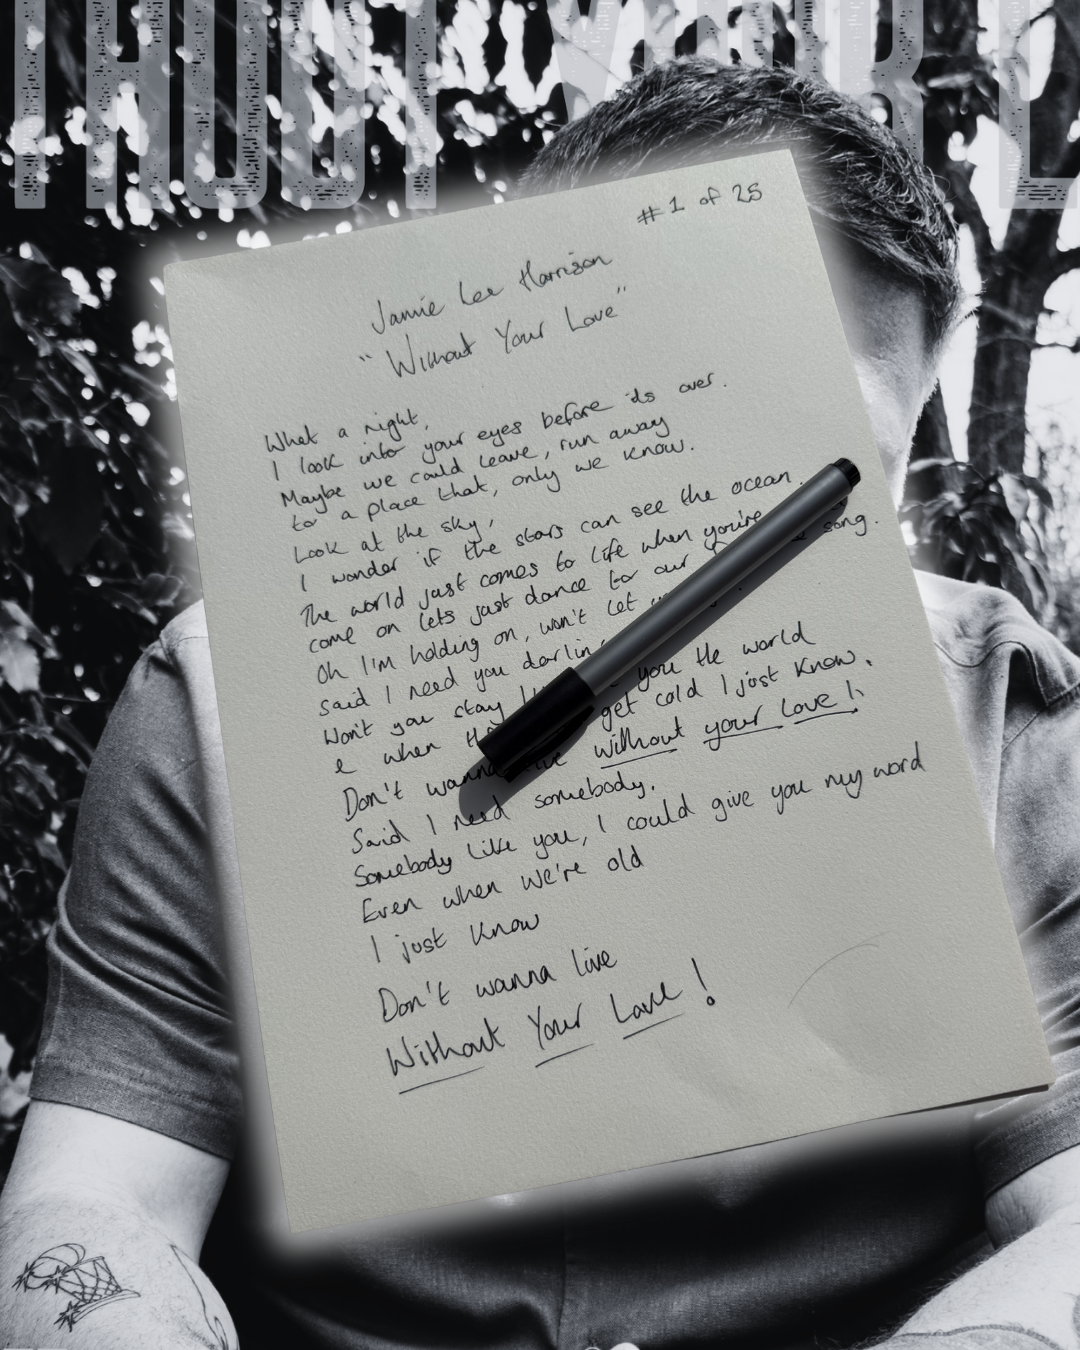 THOUT YOUR L
#1 of 25
Jamie Lee Harrison
"Without Your Love"
What a night,
I look into your eyes before its over.
Maybe we could leave, run away
to a place that, only we know.
Look at the sky,
I wonder if the stars can see the ocean.
The world just comes to life when you're
come on lets just dance to our song.
Oh I'm holding on, won't let
said I need you darlin
Won't you stay you the world
& when get cold I just know.
Don't wanna live without your love!
Said I need somebody.
Somebody like you, I could give you my word
Even when we're old
I just know
Don't wanna live
Without Your Love!